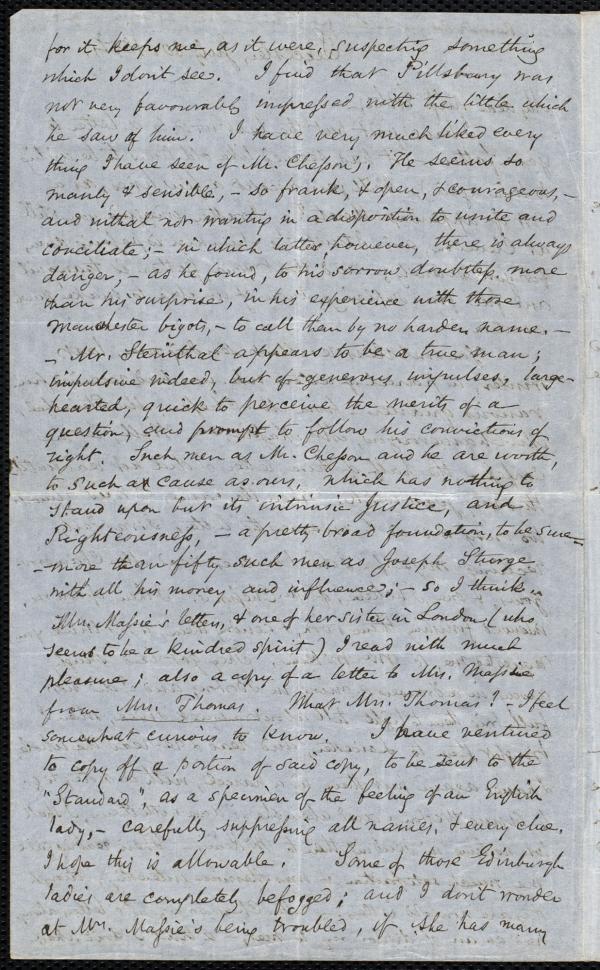 for it keeps me, as it were, suspecting something
which I don't see. I find that Pillsbury was
not very favourably impressed with the little which
he saw of him. I have very much liked every
thing I have seen of Mr. Chesson's. He seems so
manly & sensible, - so frank, & open, & courageous, -
and withal not wanting in a disposition to unite and
conciliate; - in which latter, however, there is always
danger, - as he found, to his sorrow doubtless more
than his surprise, in his experience with those
Manchester bigots, - to call them by no harder name. -
- Mr. Steinthal appears to be a true man;
impulsive indeed, but of generous impulses, large-
hearted, quick to perceive the merits of a
question, and prompt to follow his convictions of
right. Such men as Mr. Chesson and he are worth,
to such a cause as ours, which has nothing to
stand upon but its intrinsic Justice, and
Righteousness, - a pretty broad foundation, to be sure -
- more than fifty such men as Joseph Sturge
with all his money and influence; - so I think.
Mrs. Massie's letters, & one of her sister in London (who
seems to be a kindred spirit) I read with much
pleasure; also a copy of a letter to Mrs. Massie
from Mrs. Thomas. What Mrs. Thomas? - I feel
somewhat curious to know. I have ventured
to copy off a portion of said copy, to be sent to the
"Standard", as a specimen of the feeling of an English
lady, - carefully suppressing all names, & every clue.
I hope this is allowable. Some of those Edinburgh
ladies are completely befogged; and I don't wonder
at Mrs. Massie's being troubled, if she has many